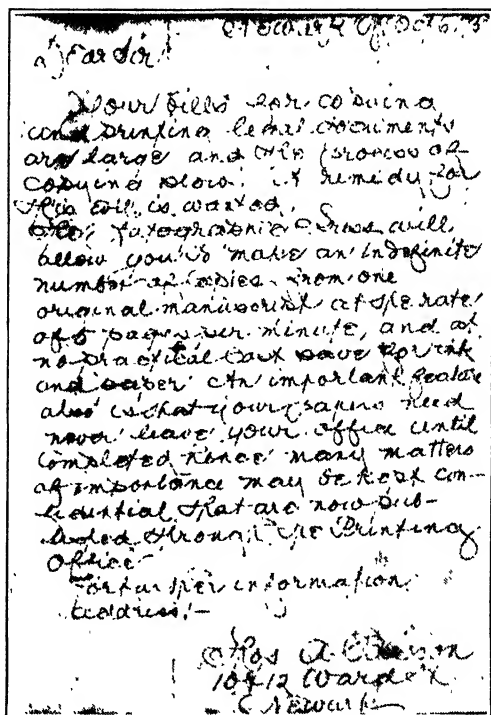 Newark NJ Oct 6, 75
Dear Sir
Your bills for copying
and printing legal documents
are large and the process of
copying slow. A remedy for
this evil is wanted.
The Autographic Press will
allow you to make an indefinite
number of copies from one
original manuscript at the rate
of 5 pages per minute, and at
no practical cost save for ink
and paper. An important feature
also is that your papers need
never leave your office until
completed hence many matters
of importance may be kept con-
fidential that are now
through the Printing
Office
For further information
address:—
Thos A Edison
10 & 12 Ward St
Newark